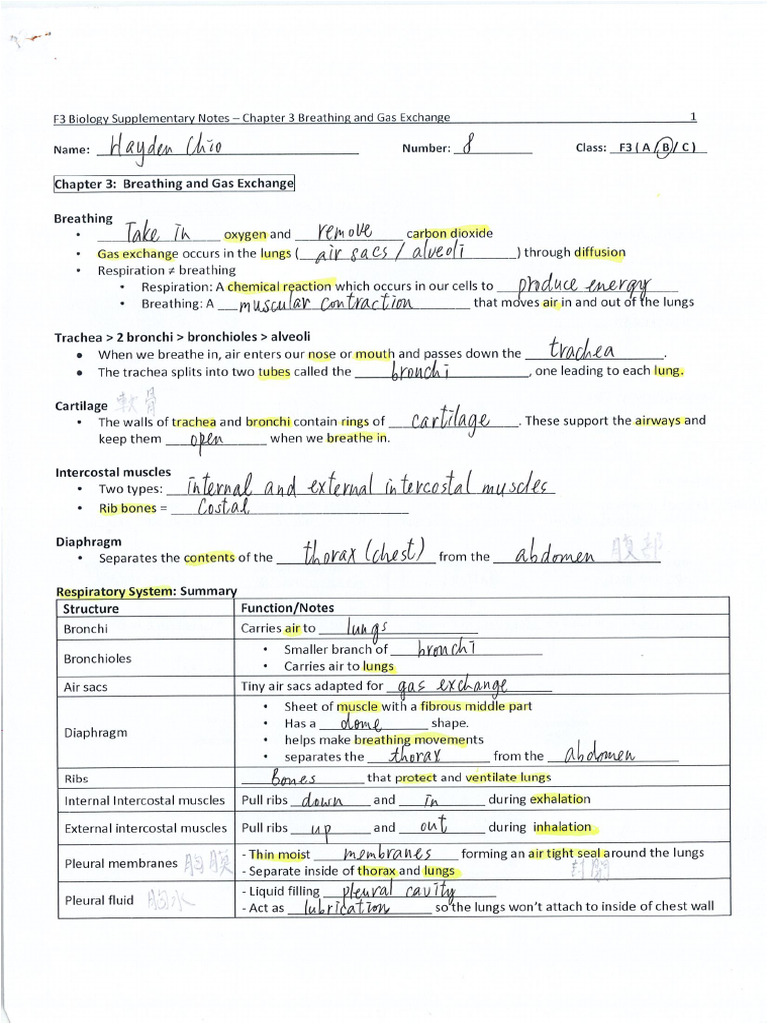 F3 Biology Supplementary Notes – Chapter 3 Breathing and Gas Exchange 1
Name: Hayden Chio Number: 8 Class: F3 ( A / B / C )
Chapter 3: Breathing and Gas Exchange
Breathing
• Take in oxygen and remove carbon dioxide
• Gas exchange occurs in the lungs ( air sacs / alveoli ) through diffusion
• Respiration ≠ breathing
• Respiration: A chemical reaction which occurs in our cells to produce energy
• Breathing: A muscular contraction that moves air in and out of the lungs
Trachea > 2 bronchi > bronchioles > alveoli
• When we breathe in, air enters our nose or mouth and passes down the trachea.
• The trachea splits into two tubes called the bronchi, one leading to each lung.
Cartilage 軟骨
• The walls of trachea and bronchi contain rings of cartilage. These support the airways and
keep them open when we breathe in.
Intercostal muscles
• Two types: internal and external intercostal muscles
• Rib bones = Costal
Diaphragm
• Separates the contents of the thorax (chest) from the abdomen 腹部
Respiratory System: Summary
Structure Function/Notes
Bronchi Carries air to lungs
Bronchioles
• Smaller branch of bronchi
• Carries air to lungs
Air sacs Tiny air sacs adapted for gas exchange
Diaphragm
• Sheet of muscle with a fibrous middle part
• Has a dome shape.
• helps make breathing movements
• separates the thorax from the abdomen
Ribs Bones that protect and ventilate lungs
Internal Intercostal muscles Pull ribs down and in during exhalation
External intercostal muscles Pull ribs up and out during inhalation
Pleural membranes 胸膜
- Thin moist membranes forming an air tight seal around the lungs
- Separate inside of thorax and lungs 封閉
Pleural fluid 胸水
- Liquid filling pleural cavity
- Act as lubrication so the lungs won't attach to inside of chest wall